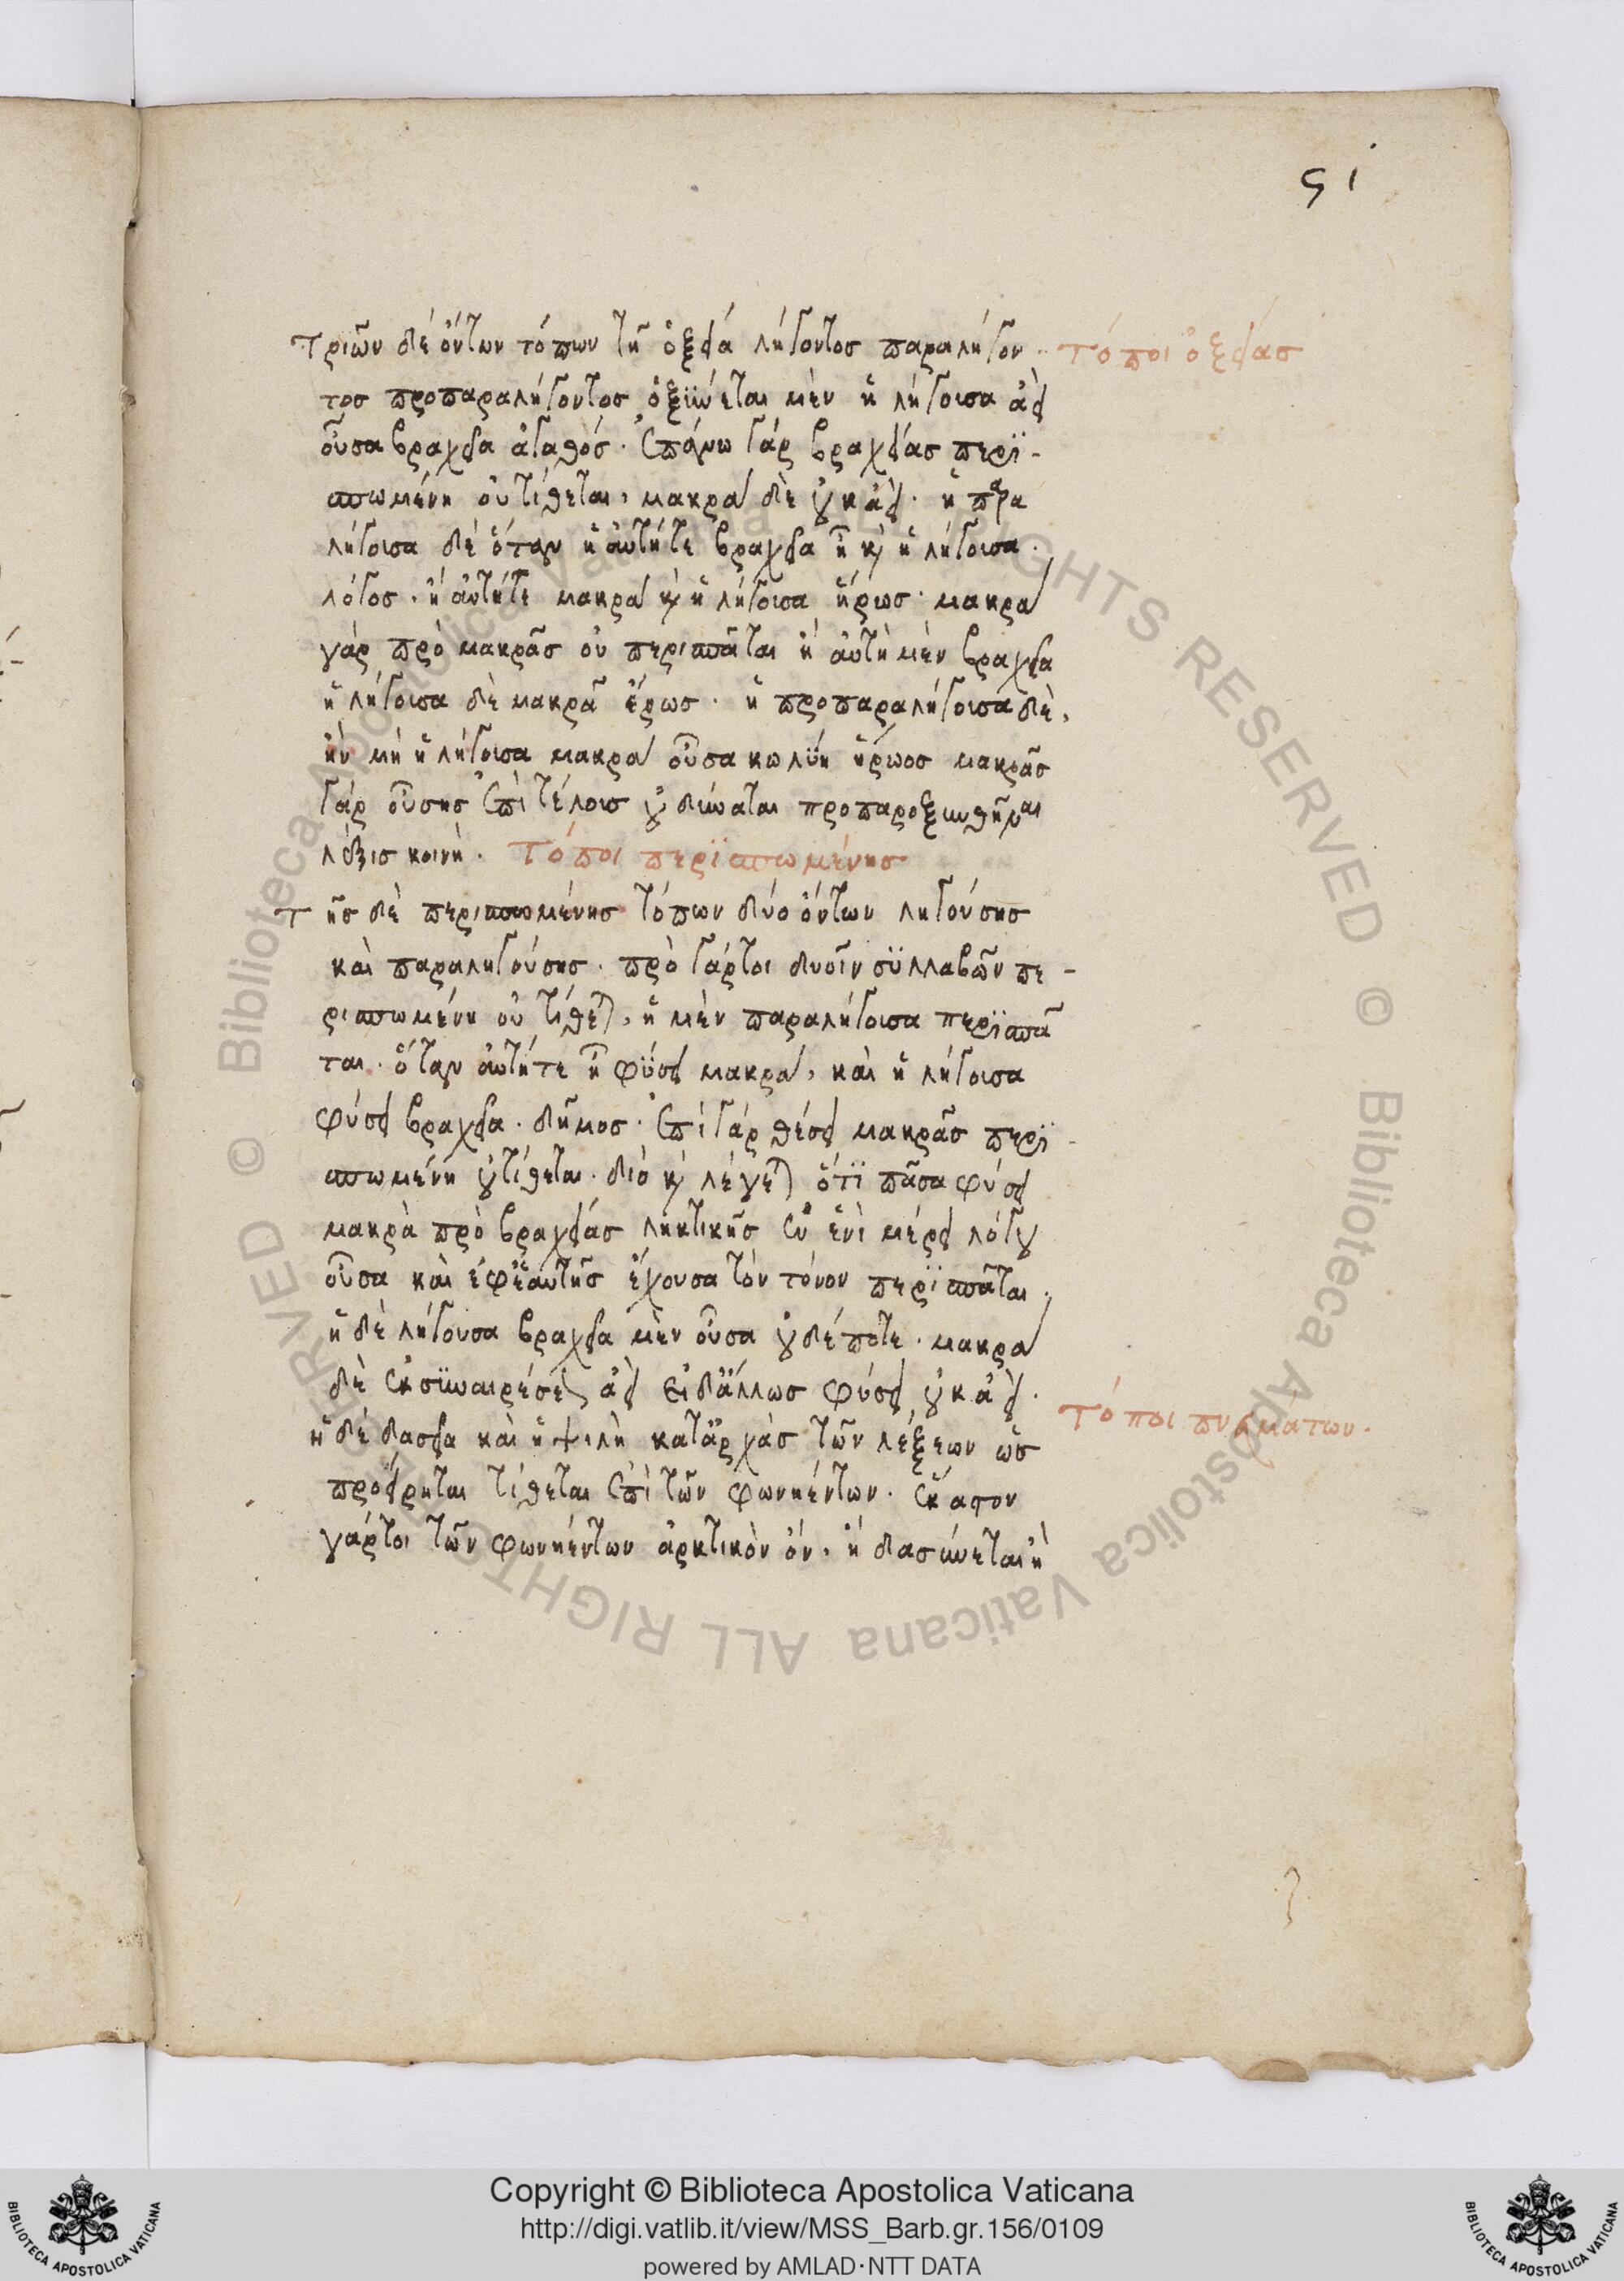 ςι
Τριῶν δὲ ὄντων τόπων τῇ ὀξείᾳ λήγοντος παραλήγον-
τόποι ὀξείας
τος προπαραλήγοντος ὀξύνεται μὲν ἡ λήγουσα ἀεὶ
οὖσα βραχεῖα ἀγαθός. ἐπάνω γὰρ βραχείας περι-
σπωμένη οὐ τίθεται, μακρὰ δὲ οὐκ ἀεί. ἡ παρα
λήγουσα δὲ ὅταν ἢ αὐτήτε βραχεῖα ᾖ καὶ ἡ λήγουσα.
λόγος. ἢ αὐτήτε μακρὰ καὶ ἡ λήγουσα ἥρως. μακρὰ
γὰρ πρὸ μακρᾶς οὐ περισπᾶται ἢ αὐτὴ μὲν βραχεῖα
ἡ λήγουσα δὲ μακρὰ ἔρως. ἡ προπαραλήγουσα δὲ,
ἢν μὴ ἡ λήγουσα μακρὰ οὖσα κωλύῃ ἥρωος μακρᾶς
γὰρ οὔσης ἐπὶ τέλους οὐ δύναται προπαροξυνθῆναι
λέξις κοινή. Τόποι περισπωμένης
Τῆς δὲ περισπωμένης τόπων δύο ὄντων ληγούσης
καὶ παραληγούσης. πρὸ γάρτοι δυοῖν συλλαβῶν πε-
ρισπωμένη οὐ τίθεται, ἡ μὲν παραλήγουσα περισπᾶ
ται. ὅταν αὐτήτε ᾖ φύσει μακρά, καὶ ἡ λήγουσα
φύσει βραχεῖα. δῆμος. ἐπὶ γὰρ θέσει μακρᾶς περι-
σπωμένη οὐ τίθεται. διὸ καὶ λέγεται ὅτι πᾶσα φύσει
μακρὰ πρὸ βραχείας ληκτικῆς ἐν ἑνὶ μέρει λόγου
οὖσα καὶ ἐφ' ἑαυτῆς ἔχουσα τὸν τόνον περισπᾶται.
ἡ δὲ λήγουσα βραχεῖα μὲν οὖσα οὐδέποτε. μακρὰ
δὲ ἐκ συναιρέσεως ἀεὶ εἰ δ' ἄλλως φύσει οὐκ ἀεί.
ἡ δὲ δασεῖα καὶ ἡ ψιλὴ κατ' ἀρχὰς τῶν λέξεων ὡς
τόποι πνευμάτων.
προείρηται τίθεται ἐπὶ τῶν φωνηέντων. ἕκαστον
γάρτοι τῶν φωνηέντων ἀρκτικὸν ὄν, ἢ δασύνεται ἢ
Copyright © Biblioteca Apostolica Vaticana
http://digi.vatlib.it/view/MSS_Barb.gr.156/0109
powered by AMLAD·NTT DATA